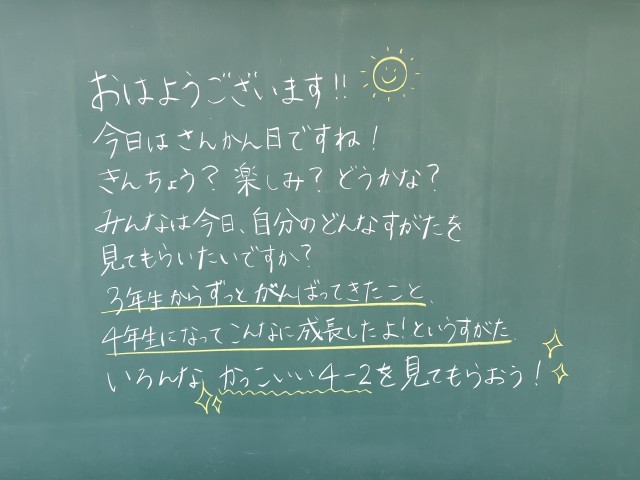 おはようございます!!
今日はさんかん日ですね!
きんちょう?楽しみ?どうかな?
みんなは今日、自分のどんなすがたを
見てもらいたいですか?
3年生からずっとがんばってきたこと、
4年生になってこんなに成長したよ!というすがた
いろんな かっこいい4-2を見てもらおう!